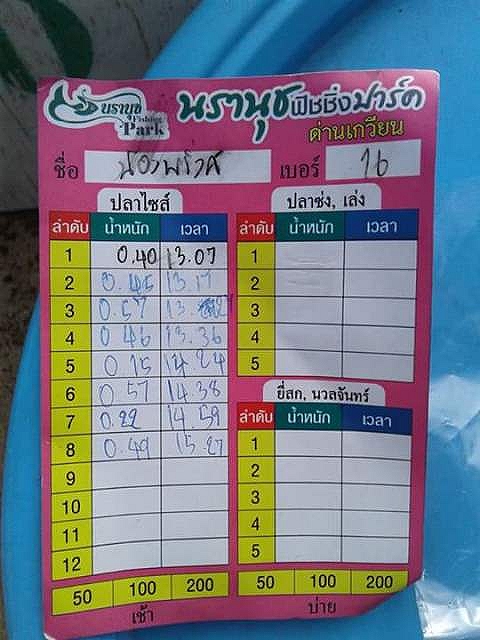 นรานุช
Fishing
Park
นรานุชฟิชชิ่งปาร์ค
ด่านเกวียน
ชื่อ เบอร์ 16
ปลาไซส์
ลำดับ น้ำหนัก เวลา
1 0.40 13.07
2 0.45 13.17
3 0.57 13.
4 0.46 13.36
5 0.15 14.24
6 0.57 14.38
7 0.22 14.59
8 0.49 15.27
9
10
11
12
50 100 200
เช้า
ปลาซ่ง, เล่ง
ลำดับ น้ำหนัก เวลา
1
2
3
4
5
ยี่สก, นวลจันทร์
ลำดับ น้ำหนัก เวลา
1
2
3
4
5
50 100 200
บ่าย